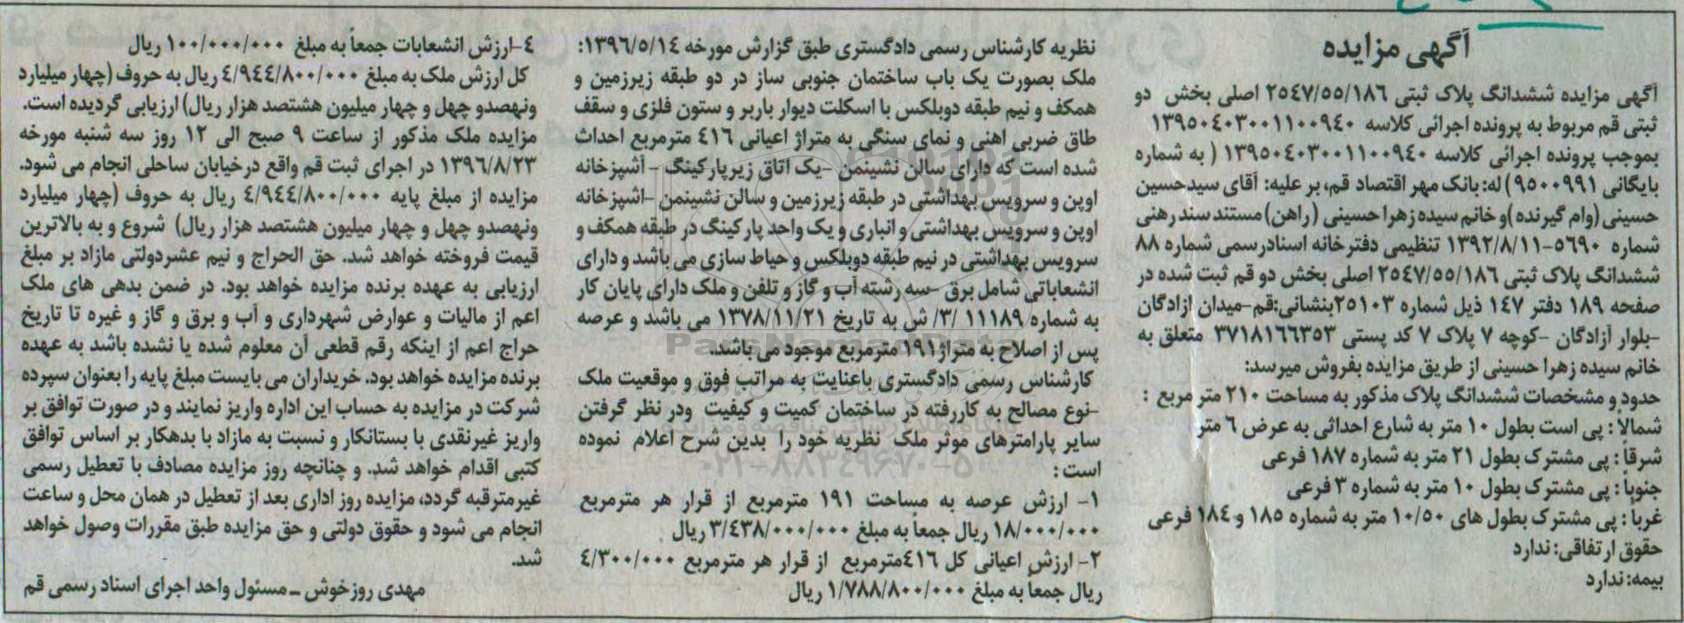 آگهی مزایده
آگهی مزایده ششدانگ پلاک ثبتی ۲۵٤۷/۵۵/۱۸٦ اصلی بخش دو
ثبتی قم مربوط به پرونده اجرائی کلاسه ۱۳۹۵۰٤۰۳۰۰۱۱۰۰۹٤۰
بموجب پرونده اجرائی کلاسه ۱۳۹۵۰٤۰۳۰۰۱۱۰۰۹٤۰ ( به شماره
بایگانی ۹۵۰۰۹۹۱) له: بانک مهر اقتصاد قم، بر علیه: آقای سیدحسین
حسینی (وام گیرنده )و خانم سیده زهرا حسینی (راهن) مستند سند رهنی
شماره ۵٦۹۰-۱۳۹۲/۸/۱۱ تنظیمی دفترخانه اسنادرسمی شماره ۸۸
ششدانگ پلاک ثبتی ۲۵٤۷/۵۵/۱۸٦ اصلی بخش دو قم ثبت شده در
صفحه ۱۸۹ دفتر ۱٤۷ ذیل شماره ۲۵۱۰۳بنشانی:قم-میدان آزادگان
-بلوار آزادگان -کوچه ۷ پلاک ۷ کد پستی ۳۷۱۸۱٦٦۳۵۳ متعلق به
خانم سیده زهرا حسینی از طریق مزایده بفروش میرسد:
حدود و مشخصات ششدانگ پلاک مذکور به مساحت ۲۱۰ متر مربع :
شمالاً : پی است بطول ۱۰ متر به شارع احداثی به عرض ٦ متر
شرقاً : پی مشترک بطول ۲۱ متر به شماره ۱۸۷ فرعی
جنوباً : پی مشترک بطول ۱۰ متر به شماره ۳ فرعی
غرباً : پی مشترک بطول های ۱۰/۵۰ متر به شماره ۱۸۵ و ۱۸٤ فرعی
حقوق ارتفاقی: ندارد
بیمه: ندارد
نظریه کارشناس رسمی دادگستری طبق گزارش مورخه ۱۳۹٦/۵/۱٤:
ملک بصورت یک باب ساختمان جنوبی ساز در دو طبقه زیرزمین و
همکف و نیم طبقه دوبلکس با اسکلت دیوار باربر و ستون فلزی و سقف
طاق ضربی آهنی و نمای سنگی به متراژ اعیانی ٤۱٦ مترمربع احداث
شده است که دارای سالن نشیمن -یک اتاق زیرپارکینگ - آشپزخانه
اوپن و سرویس بهداشتی در طبقه زیرزمین و سالن نشیمن -آشپزخانه
اوپن و سرویس بهداشتی و انباری و یک واحد پارکینگ در طبقه همکف و
سرویس بهداشتی در نیم طبقه دوبلکس و حیاط سازی می باشد و دارای
انشعاباتی شامل برق -سه رشته آب و گاز و تلفن و ملک دارای پایان کار
به شماره ۱۱۱۸۹ /۳/ ش به تاریخ ۱۳۷۸/۱۱/۲۱ می باشد و عرصه
پس از اصلاح به متراژ۱۹۱ مترمربع موجود می باشد.
کارشناس رسمی دادگستری باعنایت به مراتب فوق و موقعیت ملک
-نوع مصالح به کاررفته در ساختمان کمیت و کیفیت ودر نظر گرفتن
سایر پارامترهای موثر ملک نظریه خود را بدین شرح اعلام نموده
است :
۱- ارزش عرصه به مساحت ۱۹۱ مترمربع از قرار هر مترمربع
۱۸/۰۰۰/۰۰۰ ریال جمعاً به مبلغ ۳/٤۳۸/۰۰۰/۰۰۰ ریال
۲- ارزش اعیانی کل ٤۱٦مترمربع از قرار هر مترمربع ٤/۳۰۰/۰۰۰
ریال جمعاً به مبلغ ۱/۷۸۸/۸۰۰/۰۰۰ ریال
٤-ارزش انشعابات جمعاً به مبلغ ۱۰۰/۰۰۰/۰۰۰ ریال
کل ارزش ملک به مبلغ ٤/۹٤٤/۸۰۰/۰۰۰ ریال به حروف (چهار میلیارد
ونهصدو چهل و چهار میلیون هشتصد هزار ریال) ارزیابی گردیده است.
مزایده ملک مذکور از ساعت ۹ صبح الی ۱۲ روز سه شنبه مورخه
۱۳۹٦/۸/۲۳ در اجرای ثبت قم واقع درخیابان ساحلی انجام می شود.
مزایده از مبلغ پایه ٤/۹٤٤/۸۰۰/۰۰۰ ریال به حروف (چهار میلیارد
ونهصدو چهل و چهار میلیون هشتصد هزار ریال) شروع و به بالاترین
قیمت فروخته خواهد شد. حق الحراج و نیم عشردولتی مازاد بر مبلغ
ارزیابی به عهده برنده مزایده خواهد بود. در ضمن بدهی های ملک
اعم از مالیات و عوارض شهرداری و آب و برق و گاز و غیره تا تاریخ
حراج اعم از اینکه رقم قطعی آن معلوم شده یا نشده باشد به عهده
برنده مزایده خواهد بود. خریداران می بایست مبلغ پایه را بعنوان سپرده
شرکت در مزایده به حساب این اداره واریز نمایند و در صورت توافق بر
واریز غیرنقدی با بستانکار و نسبت به مازاد با بدهکار بر اساس توافق
کتبی اقدام خواهد شد. و چنانچه روز مزایده مصادف با تعطیل رسمی
غیرمترقبه گردد، مزایده روز اداری بعد از تعطیل در همان محل و ساعت
انجام می شود و حقوق دولتی و حق مزایده طبق مقررات وصول خواهد
شد.
مهدی روزخوش ـ مسئول واحد اجرای اسناد رسمی قم
ParsNamadData
۰۲۱-۸۸۳٤۹٦۷۰-۵